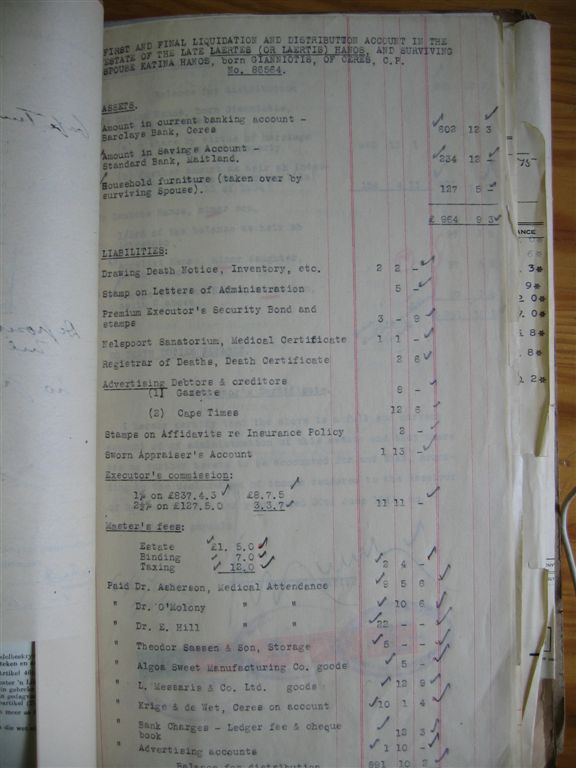 FIRST AND FINAL LIQUIDATION AND DISTRIBUTION ACCOUNT IN THE
ESTATE OF THE LATE LAERTES (OR LAERTIS) HANOS, AND SURVIVING
SPOUSE KATINA HANOS, born GIANNIOTIS, OF CERES, C.P.
No. 86564.
ASSETS.
Amount in current banking account -
Barclays Bank, Ceres 602 12 3
Amount in Savings Account -
Standard Bank, Maitland. 234 12 -
Household furniture (taken over by
surviving Spouse). 127 5 -
£ 964 9 3
LIABILITIES:
Drawing Death Notice, Inventory, etc. 2 2 -
Stamp on Letters of Administration 5 -
Premium Executor's Security Bond and
stamps 3 - 9
Nelspoort Sanatorium, Medical Certificate 1 1 -
Registrar of Deaths, Death Certificate 2 6
Advertising Debtors & creditors
(1) Gazette 6 -
(2) Cape Times 12 6
Stamps on Affidavits re Insurance Policy 2 -
Sworn Appraiser's Account 1 13 -
Executor's commission:
1% on £837.4.3 £8.7.5
2½% on £127.5.0 3.3.7 11 11 -
Master's fees:
Estate £1. 5.0
Binding 7.0
Taxing 12.0 2 4 -
Paid Dr. Asherson, Medical Attendance 9 5 6
" Dr. O'Molony " " 10 6
" Dr. E. Hill " " 22 - -
" Theodor Sassen & Son, Storage 5 - -
" Algoa Sweet Manufacturing Co. goods 5 -
" L. Messaris & Co. Ltd. goods 12 9
" Krige & de Wet, Ceres on account 10 1 4
" Bank Charges - Ledger fee & cheque
book 12 3
" Advertising accounts 1 10 -
Balance for distribution 891 10 2